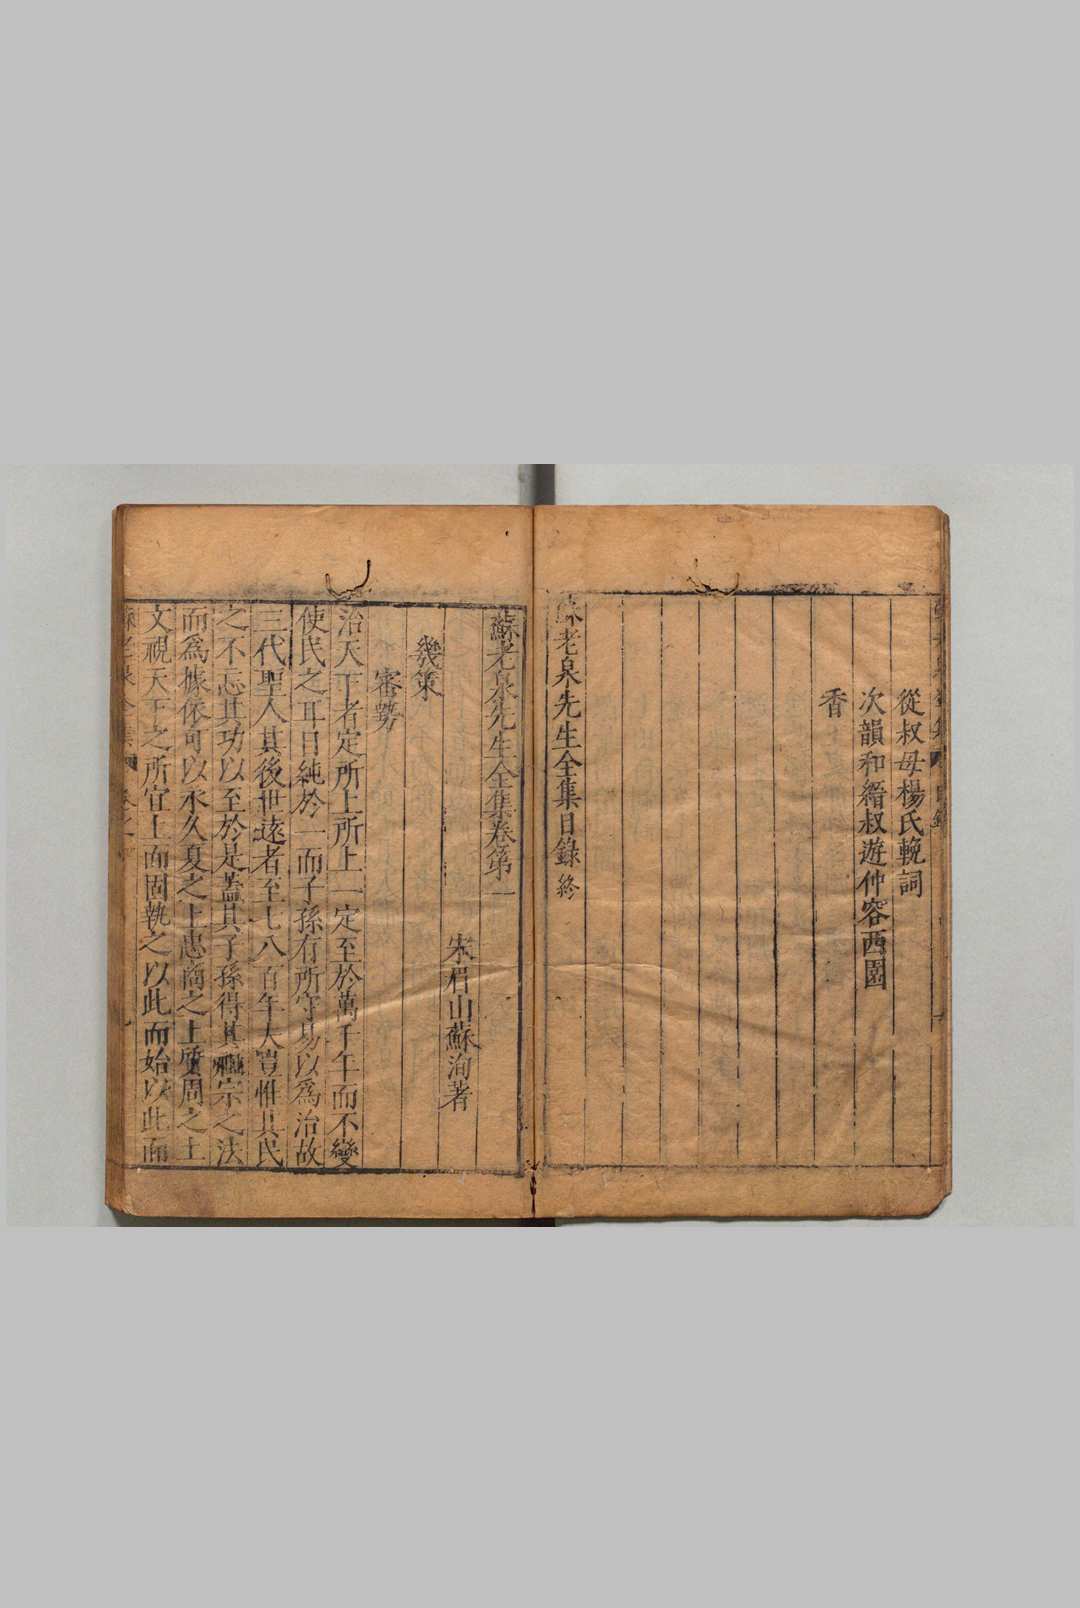 從叔母楊氏輓詞
次韻和縉叔遊仲容西園
香
蘇老泉先生全集目錄終
蘇老泉先生全集卷第一
宋眉山蘇洵著
幾策
審勢
治天下者定所上所上一定至於萬千年而不變
使民之耳目純於一而子孫有所守易以為治故
三代聖人其後世遠者至七八百年夫豈惟其民
之不忘其功以至於是蓋其子孫得其祖宗之法
而為據依可以永久夏之上忠商之上質周之上
文視天下之所宜上而固執之以此而始以此而